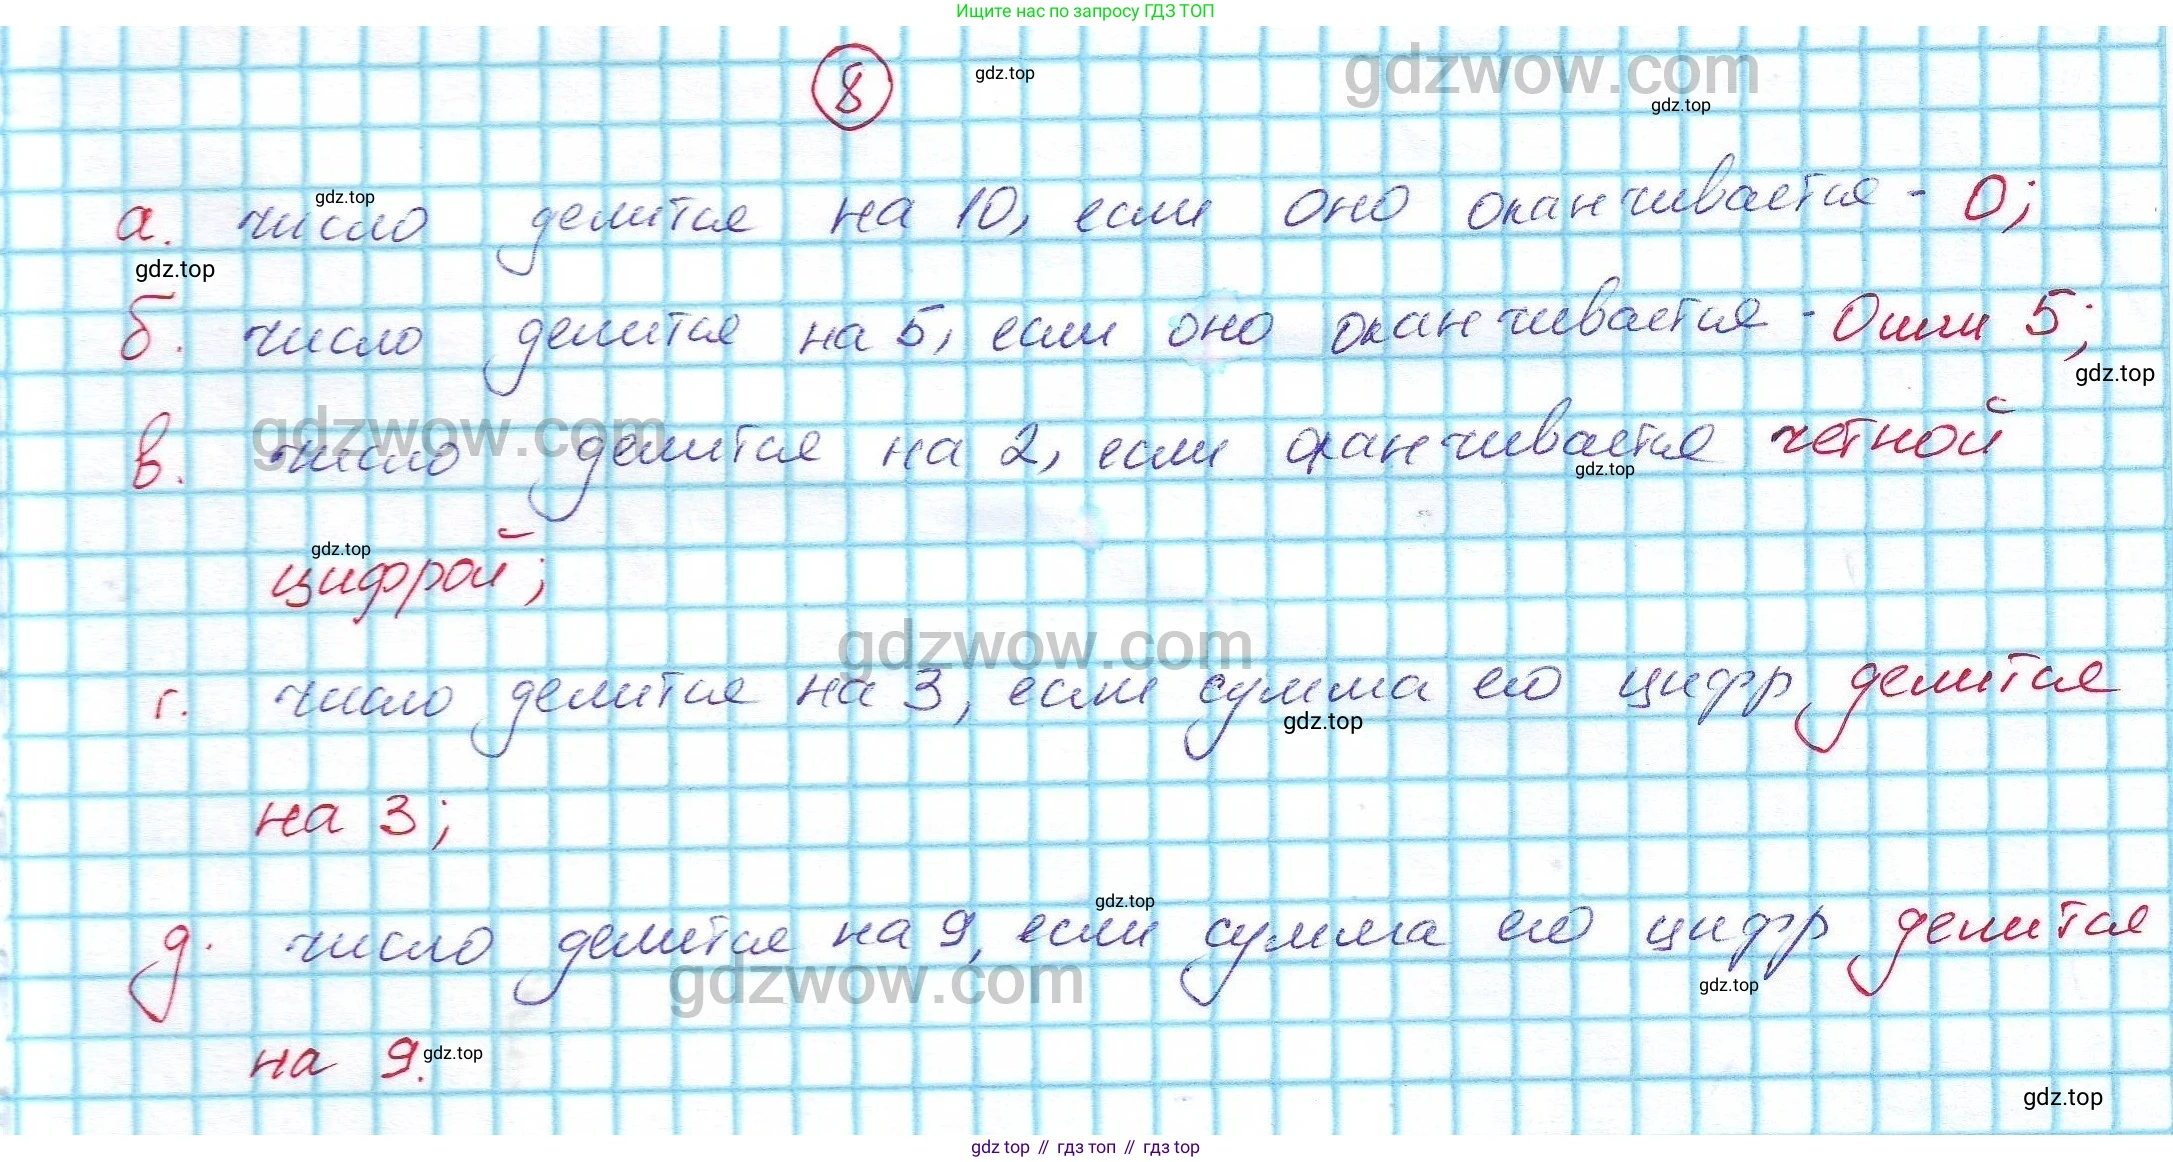 Ищите нас по запросу ГДЗ ТОП
8
gdz.top
gdzwow.com
gdz.top
gdz.top
а. число делится на 10, если оно оканчивается - 0;
gdz.top
б. число делится на 5, если оно оканчивается - 0 или 5;
gdz.top
gdzwow.com
в. число делится на 2, если оканчивается четной
gdz.top
gdz.top
цифрой;
gdzwow.com
г. число делится на 3, если сумма его цифр делится
gdz.top
на 3;
gdz.top
д. число делится на 9, если сумма его цифр делится
gdzwow.com
gdz.top
на 9.
gdz.top
gdz.top
gdz.top // гдз топ // гдз top